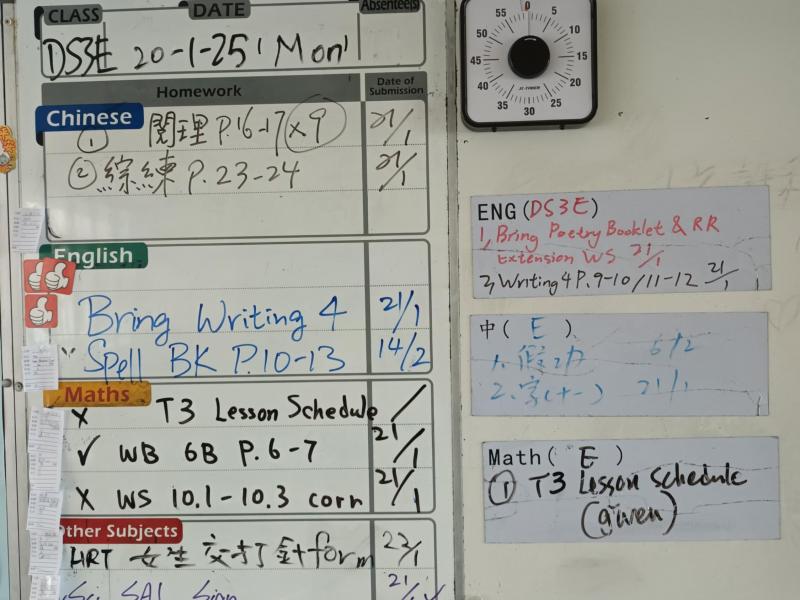 CLASS DATE Absentee(s)
DS3E 20-1-25 (Mon)
Homework Date of Submission
Chinese
① 閱理 P.16-17 x9 21/1
② 綜練 P.23-24 21/1
English
Bring Writing 4 21/1
Spell BK P.10-13 14/2
Maths
X T3 Lesson Schedule /
✓ WB 6B P.6-7 21/1
X WS 10.1-10.3 corr 21/1
Other Subjects
HRT 女生交打針form 22/1
SAL Sign 21/
55 0 5
50 10
45 15
40 20
35 30 25
ENG(DS3E)
1, Bring Poetry Booklet & RR
Extension WS 21/1
2, Writing 4 P.9-10/11-12 21/1
中( E )
1. 假功 6/2
2. 字(十一) 21/1
Math( E )
① T3 Lesson Schedule
(given)